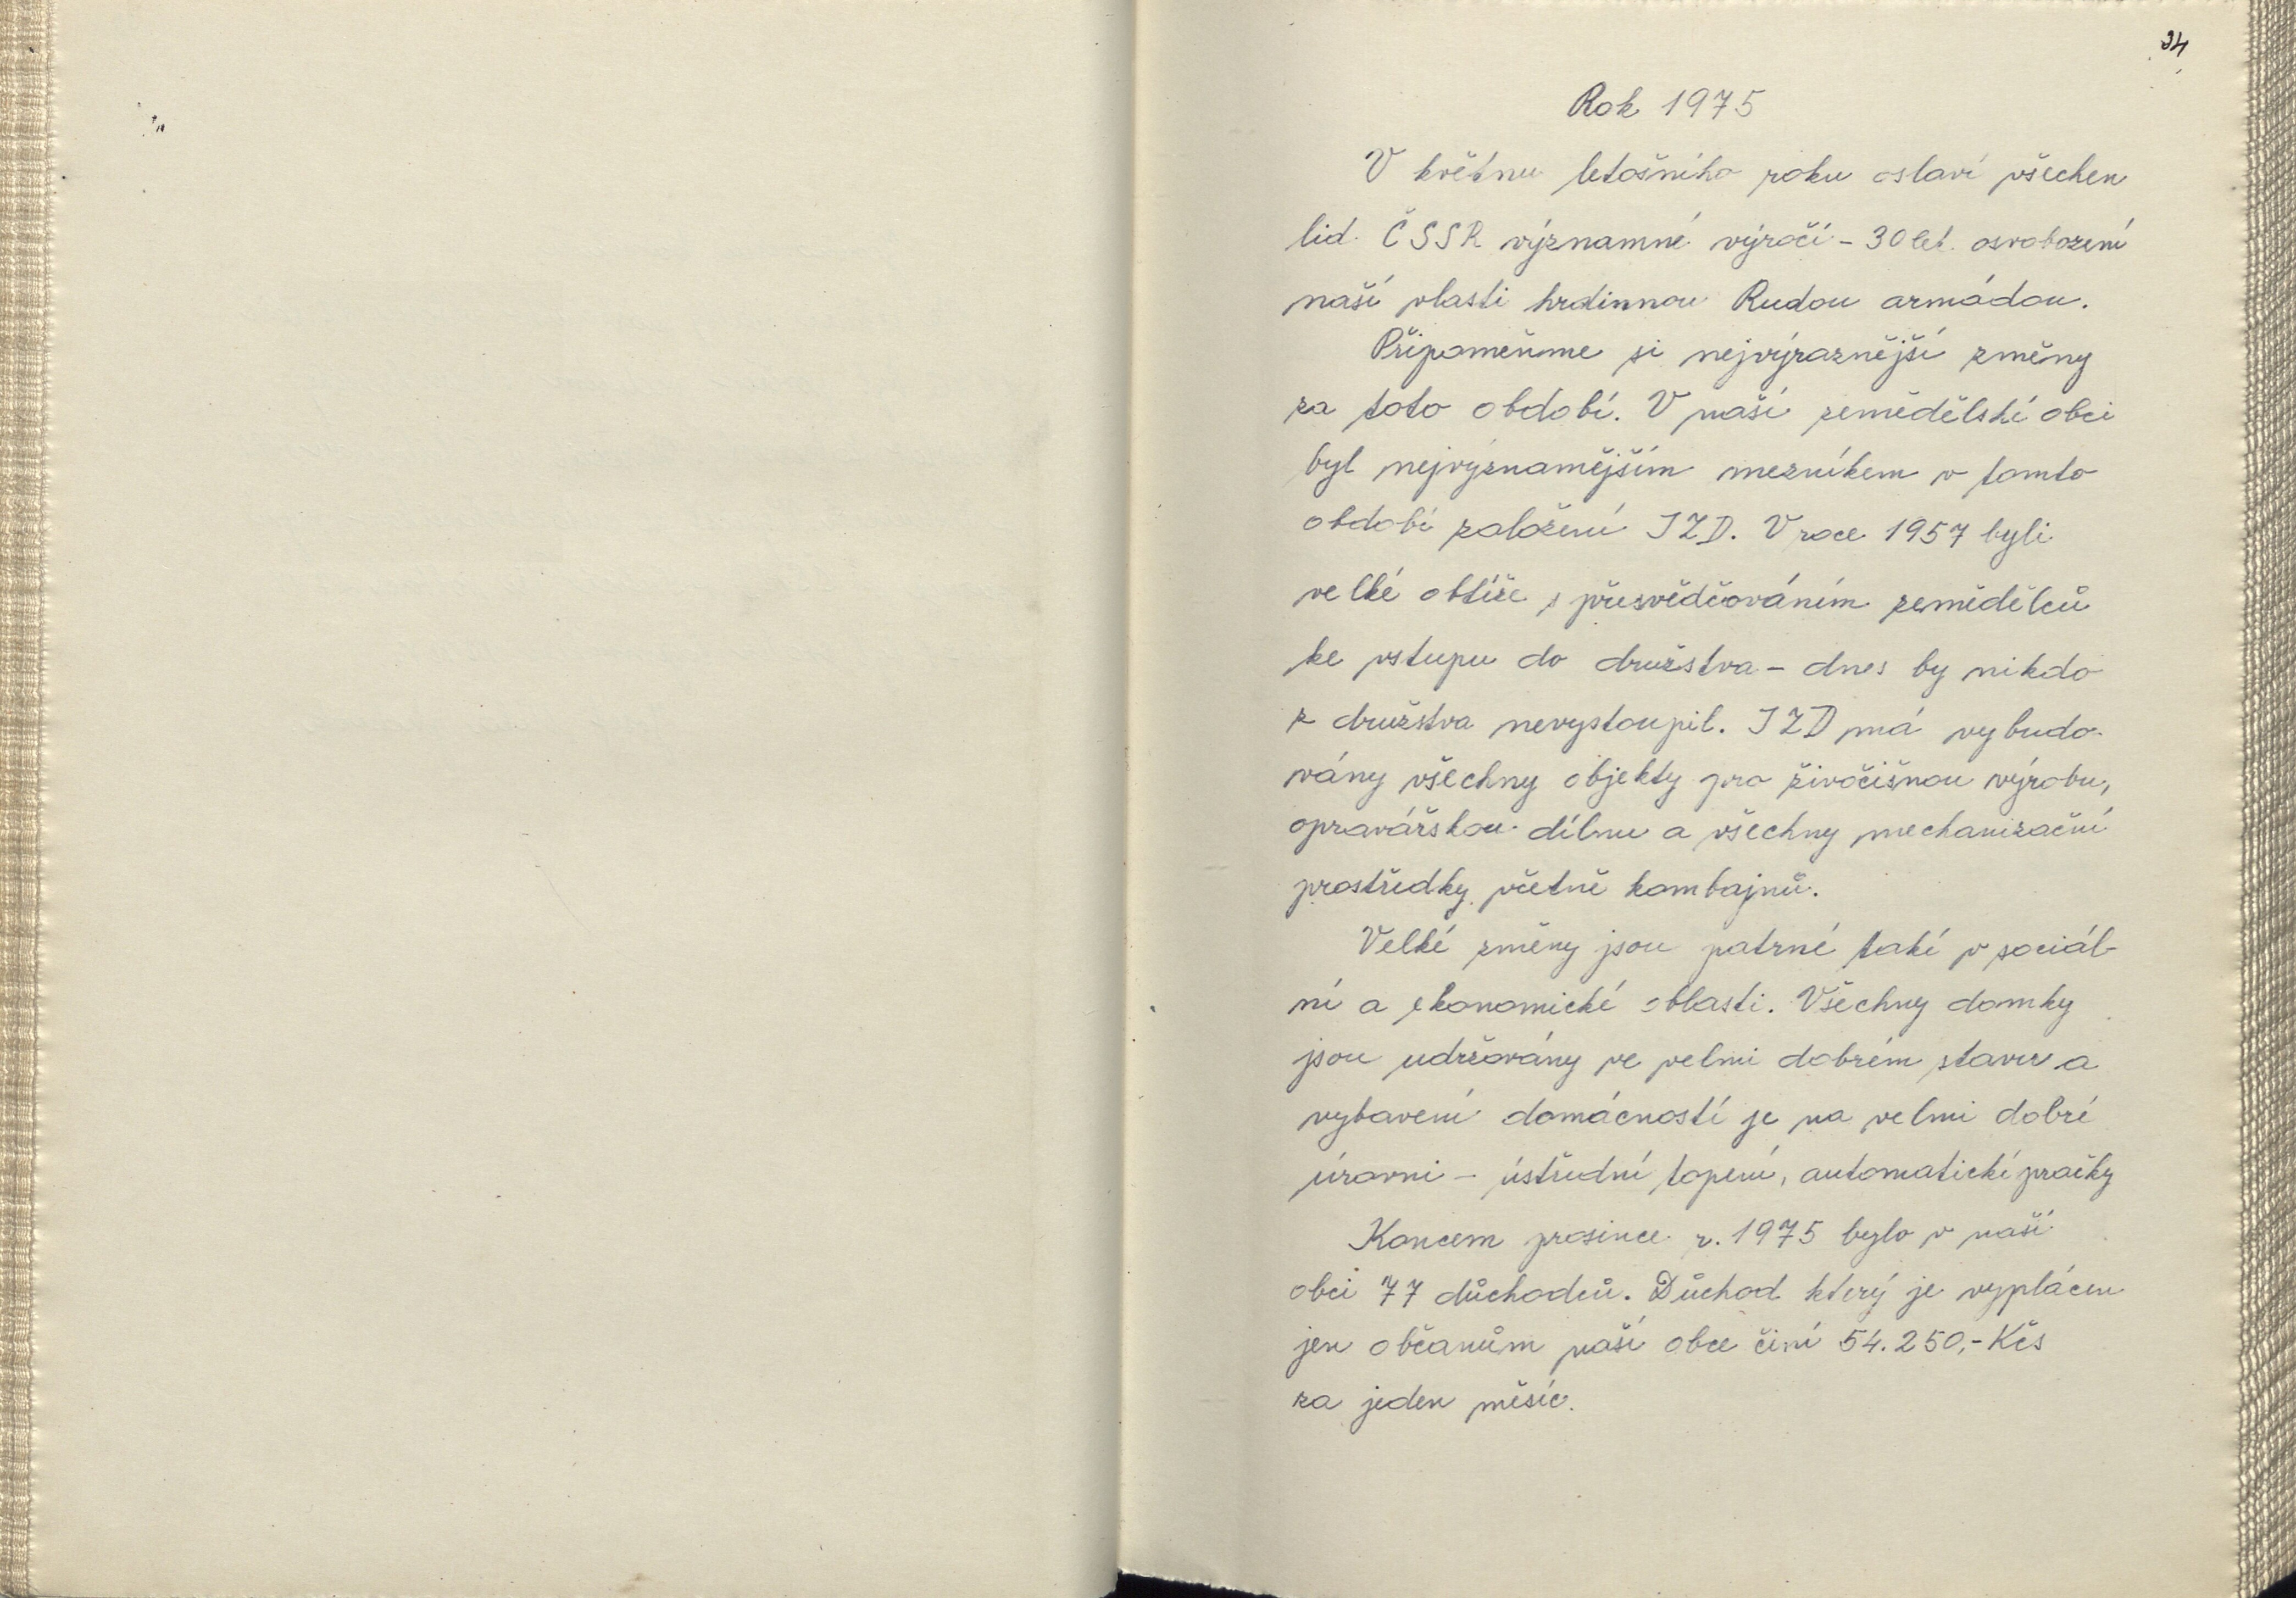 34
Rok 1975
V květnu letošního roku oslaví všechen
lid ČSSR významné výročí - 30 let osvobození
naší vlasti hrdinnou Rudou armádou.
Připomeňme si nejvýraznější změny
za toto období. V naší zemědělské obci
byl nejvýznamějším mezníkem v tomto
období založení JZD. V roce 1957 byli
velké obtíže s přesvědčováním zemědělců
ke vstupu do družstva - dnes by nikdo
z družstva nevystoupil. JZD má vybudo-
vány všechny objekty pro živočišnou výrobu,
opravářskou dílnu a všechny mechanizační
prostředky včetně kombajnů.
Velké změny jsou patrné také v sociál-
ní a ekonomické oblasti. Všechny domky
jsou udržovány ve velmi dobrém stavu a
vybavení domácností je na velmi dobré
úrovni - ústřední topení, automatické pračky
Koncem prosince r. 1975 bylo v naší
obci 77 důchodců. Důchod který je vyplácen
jen občanům naší obce činí 54.250,- Kčs
za jeden měsíc.